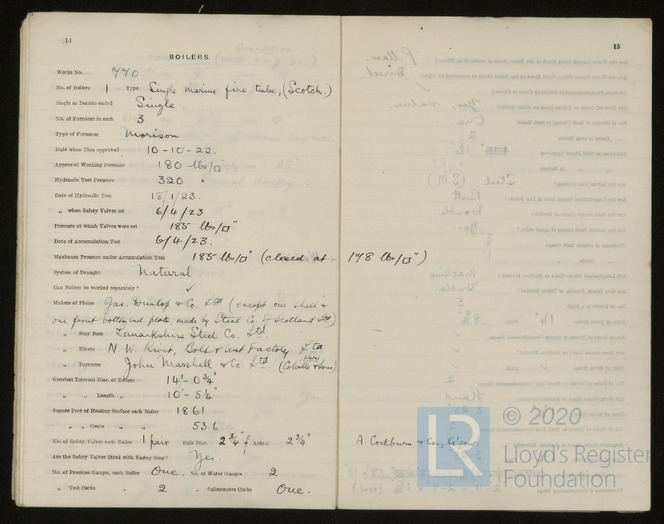 14
BOILERS.
Works No. 770
No. of Boilers 1 Type Single marine fire tube, (Scotch)
Single or Double-ended Single.
No. of Furnaces in each 3
Type of Furnaces Morison
Date when Plan approved 10-10-22.
Approved Working Pressure 180 lbs/□"
Hydraulic Test Pressure 320 "
Date of Hydraulic Test 18/1/23.
" when Safety Valves set 6/4/23
Pressure at which Valves were set 185 lbs/□"
Date of Accumulation Test 6/4/23.
Maximum Pressure under Accumulation Test 185 lbs/□" (closed at 178 lbs/□")
System of Draught Natural
Can Boilers be worked separately? ✓
Makers of Plates Jas. Dunlop & Co. Ltd (except one shell &
one front bottom end plate, made by Steel Co. of Scotland Ltd)
" Stay Bars Lanarkshire Steel Co. Ltd.
" Rivets N. W. Rivet, Bolt & Nut Factory Ltd
" Furnaces John Marshall & Co Ltd (Colville & Sons)
Greatest Internal Diam. of Boilers 14'- 0 3/4"
" " Length " 10'- 5 1/2"
Square Feet of Heating Surface each Boiler 1861
" " Grate " " 53.6
No. of Safety Valves each Boiler 1 pair Rule Diam. 2 3/4" Actual 2 3/4" A. Cockburn & Co., G'gow.
Are the Safety Valves fitted with Easing Gear? Yes.
No. of Pressure Gauges, each Boiler One. No. of Water Gauges 2
" Test Cocks " 2 " Salinometer Cocks One.
15
LR
© 2020
Lloyd's Register
Foundation